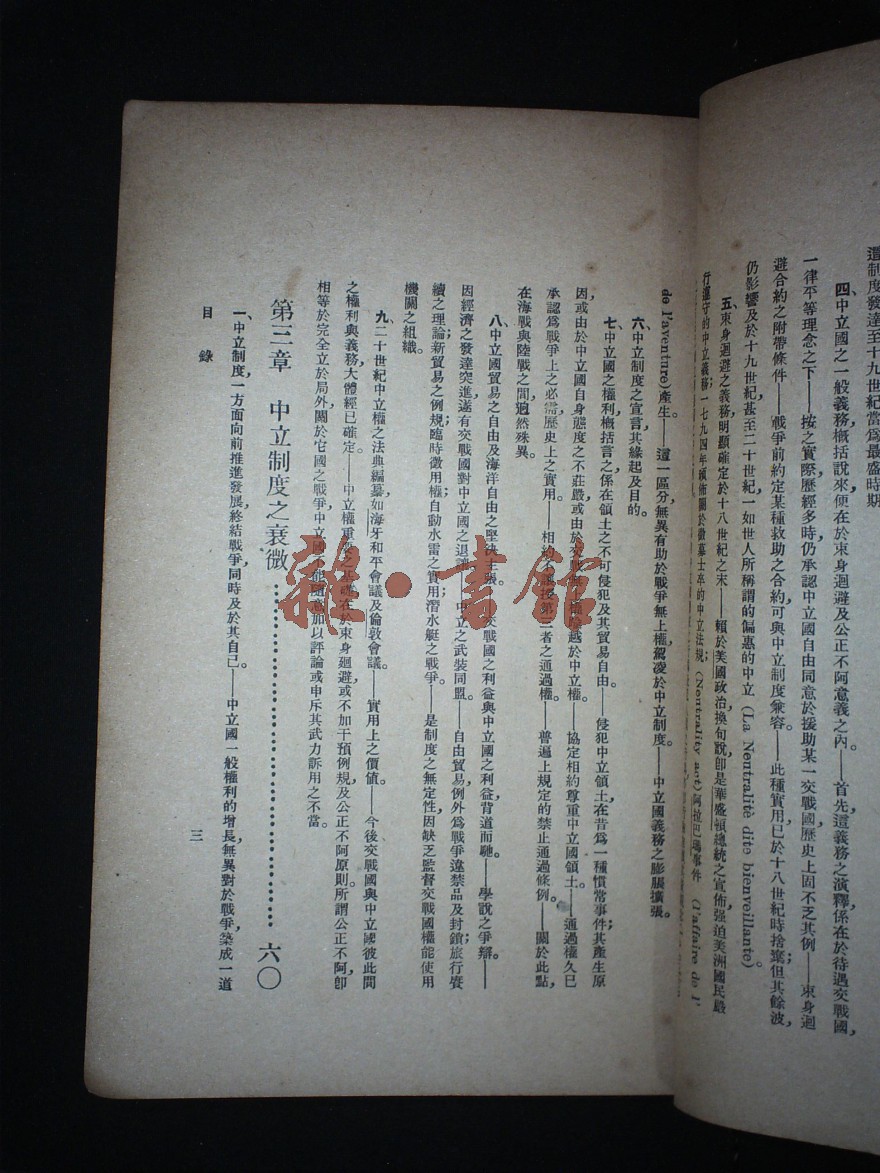 這制度發達至十九世紀當爲最盛時期
四、中立國之一般義務概括說來便在於束身迴避及公正不阿意義之內。——首先這義務之演釋係在於待遇交戰國,
一律平等理念之下——按之實際歷經多時仍承認中立國自由同意於援助某一交戰國歷史上固不乏其例——束身迴
避合約之附帶條件——戰爭前約定某種救助之合約可與中立制度兼容。——此種實用已於十八世紀時捨棄但其餘波
仍影響及於十九世紀甚至二十世紀一如世人所稱謂的偏惠的中立 (La Neutralité dite bienveillante)。
五、束身迴避之義務明顯確定於十八世紀之末——賴於美國政治換句說卽是華盛頓總統之宣佈强迫美洲國民嚴
行遵守的中立義務;一七九四年頒佈關於徵募士卒的中立法規 (Neutrality act) 阿拉巴瑪事件 (l'affaire de l'
de l'aventure) 產生。——這一區分無異有助於戰爭無上權駕凌於中立制度。——中立國義務之膨脹擴張。
六、中立制度之宣言其緣起及目的。
七、中立國之權利概括言之係在領土之不可侵犯及其貿易自由。——侵犯中立領土在昔爲一種慣常事件其產生原
因或由於中立國自身態度之不莊嚴或由於交戰無上權陵越於中立權。——協定相約尊重中立國領土——通過權久已
承認爲戰爭上之必需歷史上之實用。——相約不讓授第三者之通過權。——普遍上規定的禁止通過條例。——關於此點
在海戰與陸戰之間逈然殊異。
八、中立國貿易之自由及海洋自由之堅決主張。——交戰國之利益與中立國之利益背道而馳。——學說之爭辯。——
因經濟之發達突進遂有交戰國對中立國之退讓——中立之武裝同盟。——自由貿易例外爲戰爭違禁品及封鎖旅行賡
續之理論新貿易之例規;臨時徵用權自動水雷之實用潛水艇之戰爭。——是制度之無定性因缺乏監督交戰國權能使用
機關之組織。
九、二十世紀中立權之法典編纂如海牙和平會議及倫敦會議。——實用上之價值。——今後交戰國與中立國彼此間
之權利與義務大體經已確定。——中立權重要之基礎在於束身迴避或不加干預例規及公正不阿原則所謂公正不阿,卽
相等於完全立於局外關於它國之戰爭中立國不能隨意加以評論或申斥其武力訴用之不當。
第三章 中立制度之衰微……………………六〇
一、中立制度,一方面向前推進發展,終結戰爭,同時及於其自己。——中立國一般權利的增長,無異對於戰爭,築成一道
目錄
三
雜·書館